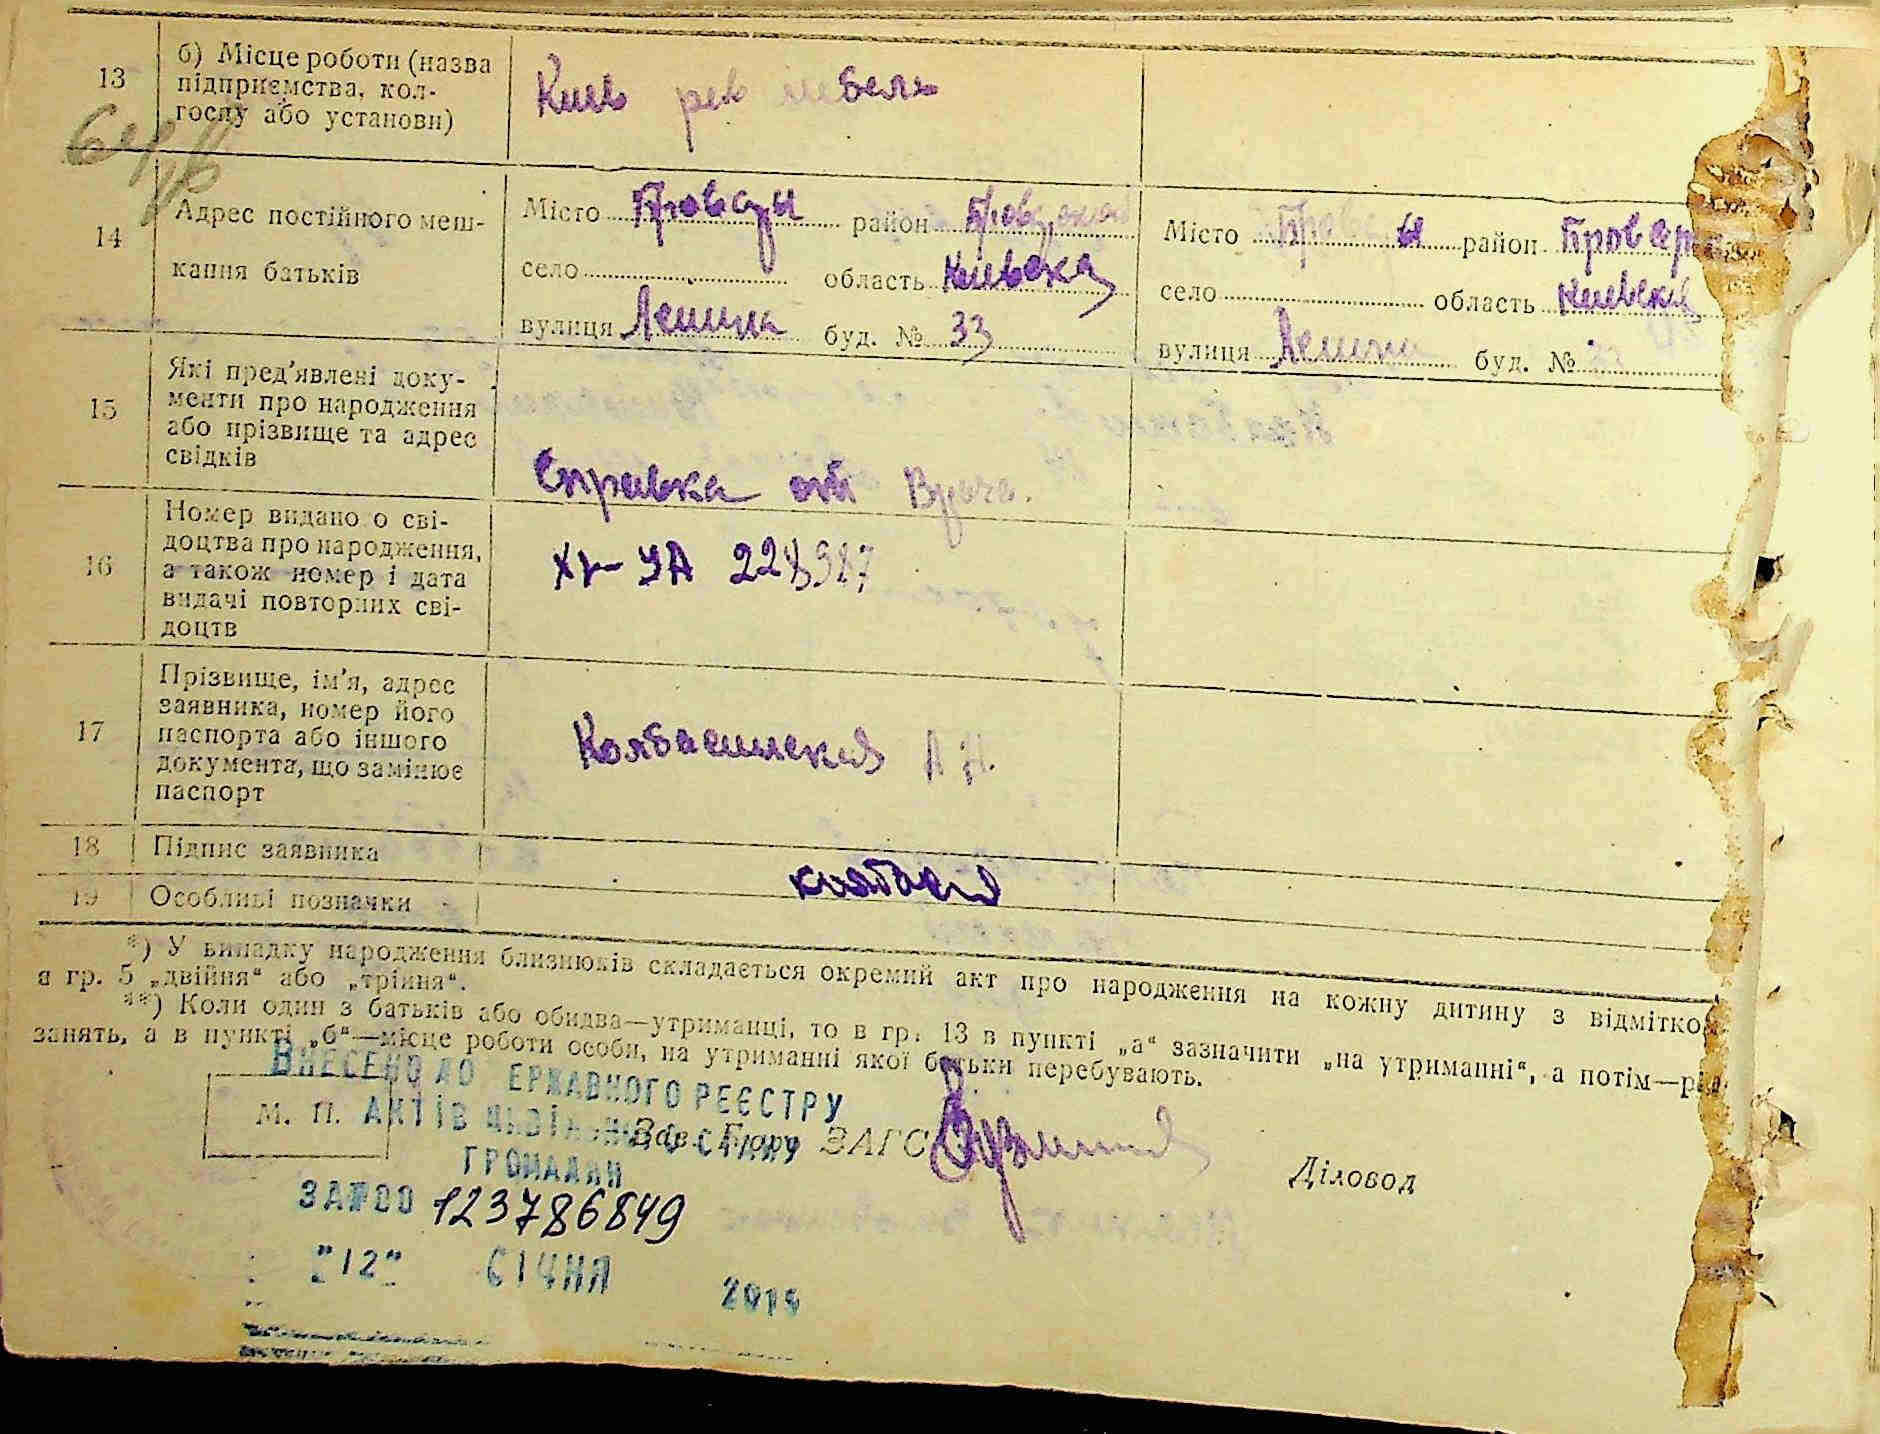 13 б) Місце роботи (назва
підприємства, кол-
госпу або установи)
Киев рев мебель
14 Адрес постійного меш-
кання батьків
Місто Бровары район Броварской
село область Киевская
вулиця Ленина буд. № 33
Місто Бровары район Броварс
село область Киевская
вулиця Ленина буд. № 33
15 Які пред’явлені доку-
менти про народження
або прізвище та адрес
свідків
Справка от Врача.
16 Номер видано о сві-
доцтва про народження,
а також номер і дата
видачі повторних сві-
доцтв
УА 228987
17 Прізвище, ім’я, адрес
заявника, номер його
паспорта або іншого
документа, що замінює
паспорт
Колбасинская А Н.
18 Підпис заявника
19 Особливі позначки
*) У випадку народження близнюків складається окремий акт про народження на кожну дитину з відміткою
в гр. 5 „двійня“ або „трійня“.
**) Коли один з батьків або обидва—утриманці, то в гр. 13 в пункті „а“ зазначити „на утриманні“, а потім—рід
занять, а в пункті „б“—місце роботи особи, на утриманні якої батьки перебувають.
ВНЕСЕНО ДО ЕРЖАВНОГО РЕЄСТРУ
АКТІВ ЦИВІЛЬНОГО СТАНУ
ГРОМАДЯН
М. П.
Зав. Бюро ЗАГС
Діловод
ЗА №00 123786849
"12" СІЧНЯ 2015